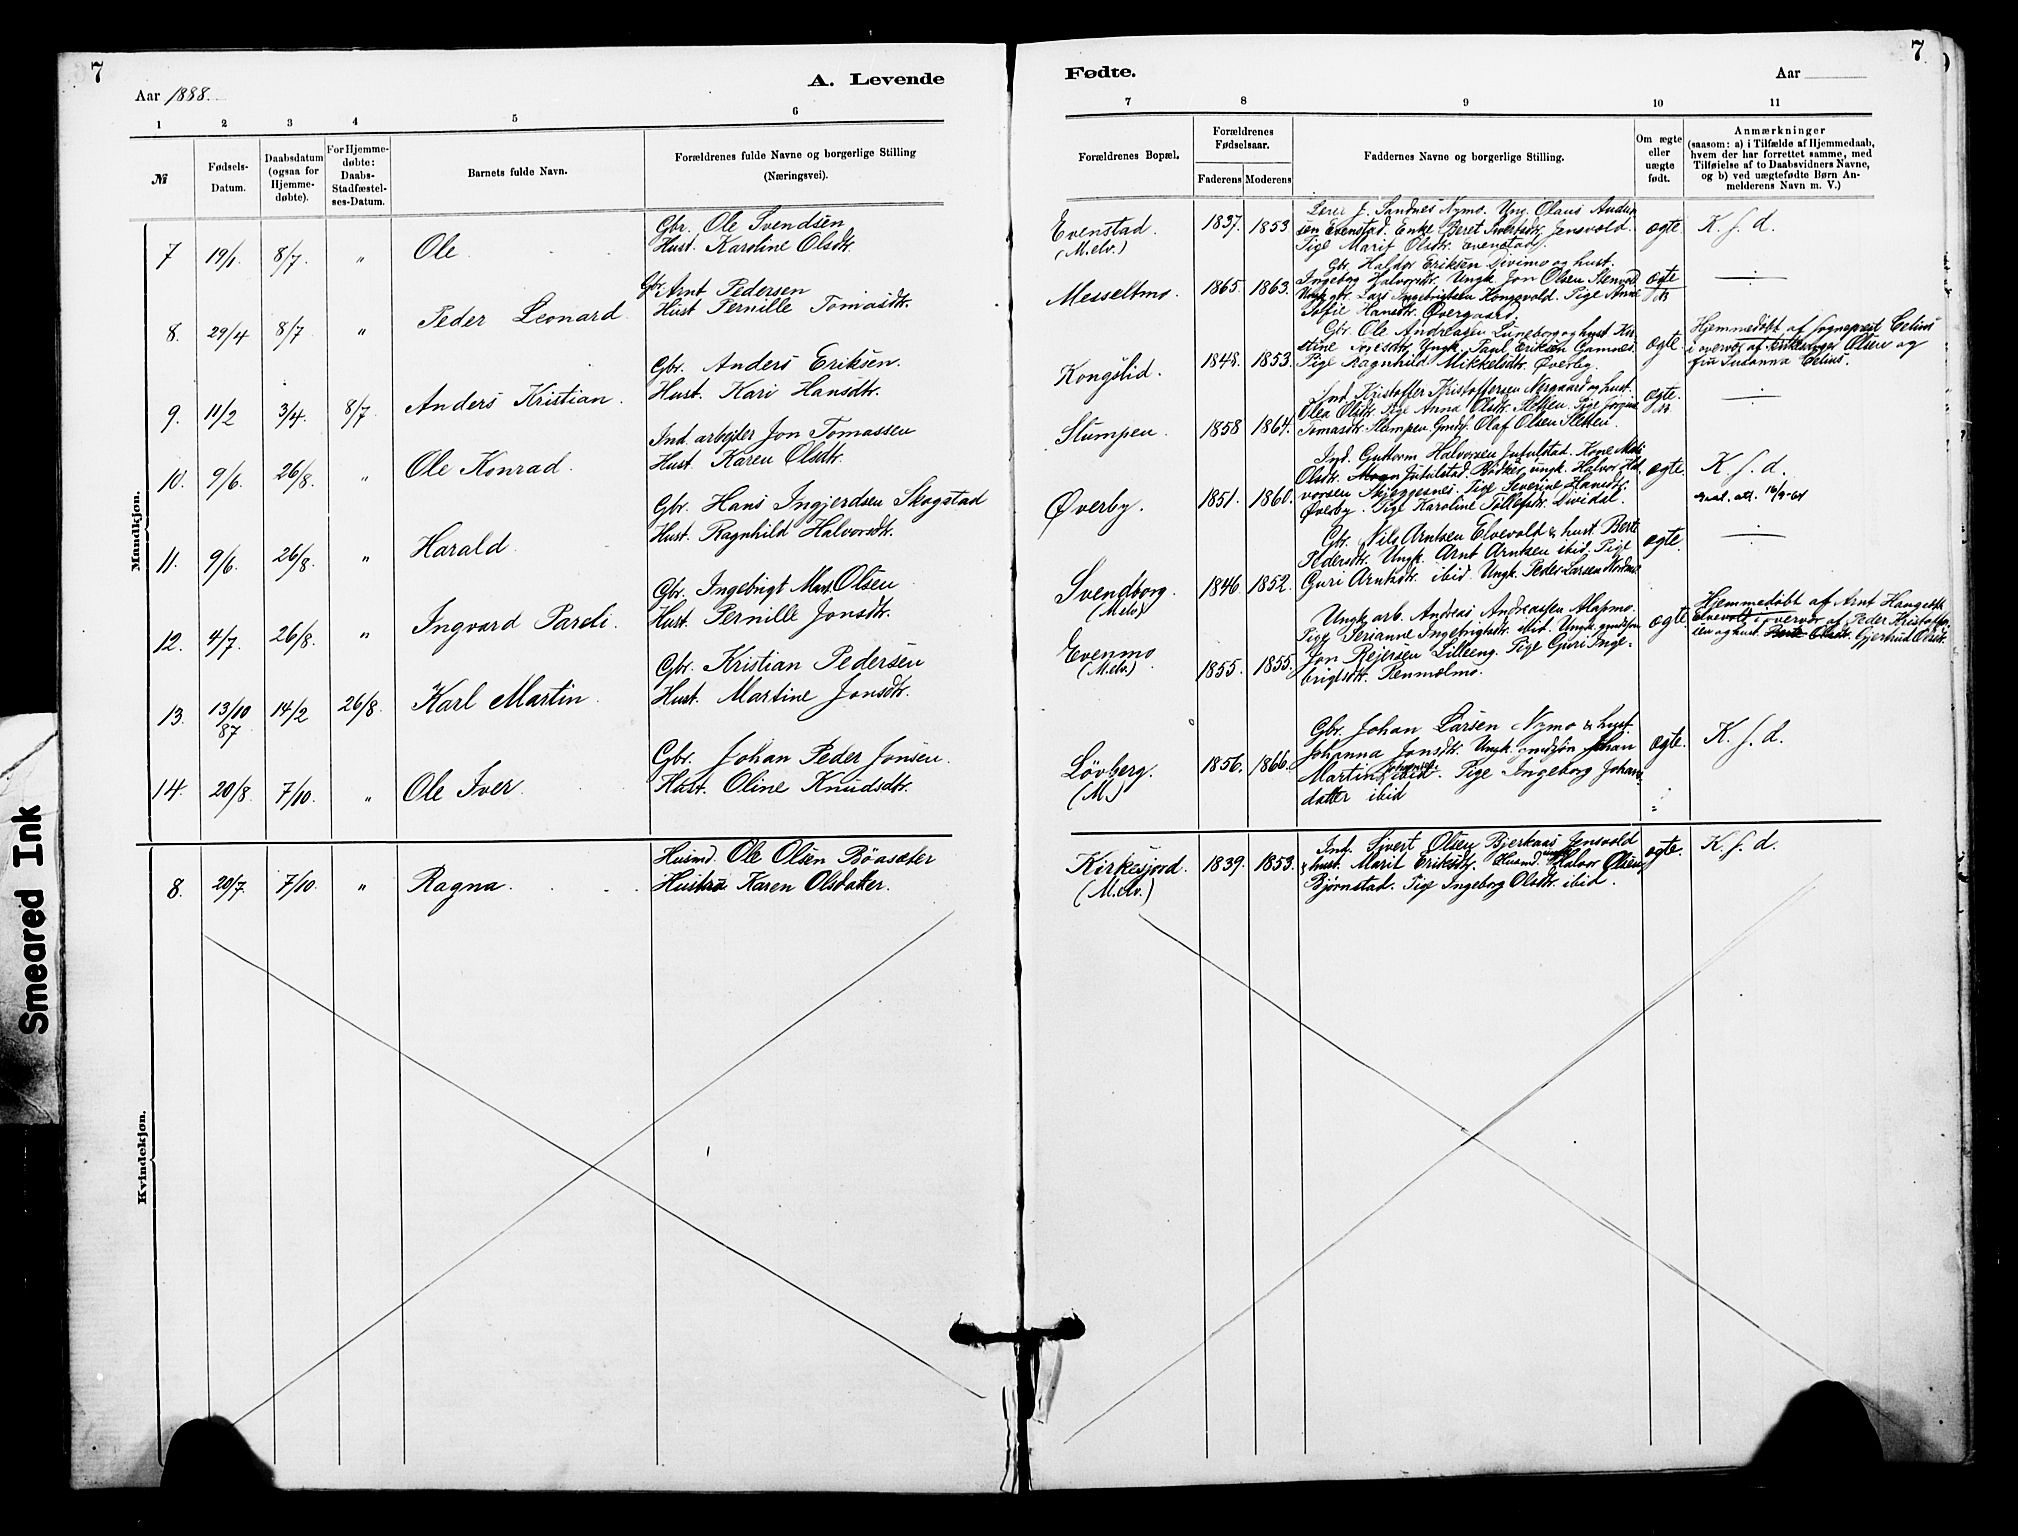 7
Aar 1888.
A. Levende
1 2 3 4 5 6
№
Fødsels-
Datum.
Daabsdatum
(ogsaa for
Hjemme-
døbte).
For Hjemme-
døbte:
Daabs-
Stadfæstel-
ses-Datum.
Barnets fulde Navn.
Forældrenes fulde Navne og borgerlige Stilling
(Næringsvei).
Mandkjøn.
7 19/1 8/7 " Ole
Gbr. Ole Svendsen
Hust. Karoline Olsdtr.
8. 29/4 8/7 " Peder Leonard
Gbr. Arnt Pedersen
Hust Pernille Tomasdtr.
9. 11/2 3/4. 8/7 Anders Kristian.
Gbr. Anders Eriksen.
Hust. Kari Hansdtr.
10. 9/6. 26/8. " Ole Konrad.
Ind. arbejder Jon Tomassen
Hust. Karen Olsdtr.
11. 9/6. 26/8. " Harald
Gbr. Hans Ingjerdsen Skogstad
Hust. Ragnhild Halvorsdtr.
12. 4/7. 26/8. " Ingvard Pareli
Gbr. Ingebrigt Mart. Olsen
Hust. Pernille Jonsdtr.
13. 13/10 87 14/2 26/8. Karl Martin
Gbr. Kristian Pedersen
Hust. Martine Jonsdtr.
14. 20/8. 7/10. " Ole Iver
Gbr. Johan Peder Jonsen.
Hust. Oline Knudsdtr.
Kvindekjøn.
8. 20/7. 7/10. " Ragna.
Husmd. Ole Olsen Bøasæter
Hustru Karen Olsdatter.
7
Fødte.
Aar
7 8 9 10 11
Forældrenes Bopæl.
Forældrenes
Fødselsaar.
Faderens Moderens
Faddernes Navne og borgerlige Stilling.
Om ægte
eller
uægte
født.
Anmærkninger
(saasom: a) i Tilfælde af Hjemmedaab,
hvem der har forrettet samme, med
Tilføielse af to Daabsvidners Navne,
og b) ved uægtefødte Børn An-
melderens Navn m. V.)
Evenstad.
(M.elv.)
1837. 1853
Lærer J. Sandnes Nymo. Ung. Olaus Andre
sen Evenstad. Enke Beret Jensvold.
Pige Marit Olsdtr. Evenstad
ægte. K. f. d.
Messeltmo. 1865 1863.
Gbr. Haldor Eriksen Divimo og hust.
Ingeborg Halvorsdtr. Ungk. Jon Olsen Stenvold
Ungk. gbr. Lars Ingebrigtsen Kongsvold. Pige Anne
Sofie Hansdtr. Øvergaard.
ægte
Kongslid. 1848. 1853.
Gbr. Ole Andreasen Luneborg og hust Kir
stine Ungk. Paul Eriksen Gamnes
Pige Ragnhild Mikkelsdtr. Øverby.
ægte
Hjemmedøbt af sogneprest Celius
i overvær af Olsen og
fru Susanna Celius.
Slumpen 1858 1864.
Ind. Kristoffer Kristoffersen Nergaard og hust.
Olea Olsdtr. Pige Anna Olsdtr. Sletten. Pige Jorgine
Tomasdtr. Slumpen. Olaf Olsen Sletten.
ægte.
Øverby. 1851. 1860.
Ind. Guttorm Halvorsen Jutulstad. Kone
Olsdtr. Jutulstad. Bødker, ungk. Halvor Hal
vorsen Skjeggesnes. Pige Severine Hansdtr.
Øverby. Pige Karoline Tollefsdtr. Dividal.
ægte. K. f. d.
Svendborg.
(M.elv)
1846 1852.
Gbr. Nils Arntsen Elvevold & hust. Berte
Pedersdtr. Ungk. Arnt Arntsen ibid. Pige
Guri Arntsdtr. ibid. Ungk. Peder Larsen Nordmo
ægte.
Evenmo
(M.elv.)
1855. 1855.
Ungk. arb. Andreas Andreassen Alapmo.
Pige Perianne Ingebrigtsdtr. ibid. Ungk.
Jon Rejersen Lilleeng. Pige Guri Inge-
brigtsdtr. Penmælmo.
ægte.
Hjemmedøbt af Arnt
Elvevold i overvær af Peder Kristoffer
sen og hust.
Løvberg.
(M.)
1856. 1866.
Gbr. Johan Larsen Nymo & hust.
Johanna Jonsdtr. Ungk. Johan
Martin ibid. Pige Ingeborg Johans
datter ibid
ægte. K. f. d.
Kirkesjord.
(M.elv.)
1839. 1853.
Ind. Sivert Olsen Bjerkaas Jensvold
& hust. Marit Eriksdtr. Husmd. Halvor Olsen
Bjørnstad. Pige Ingeborg Olsdtr. ibid.
ægte. K. f. d.
Smeared Ink